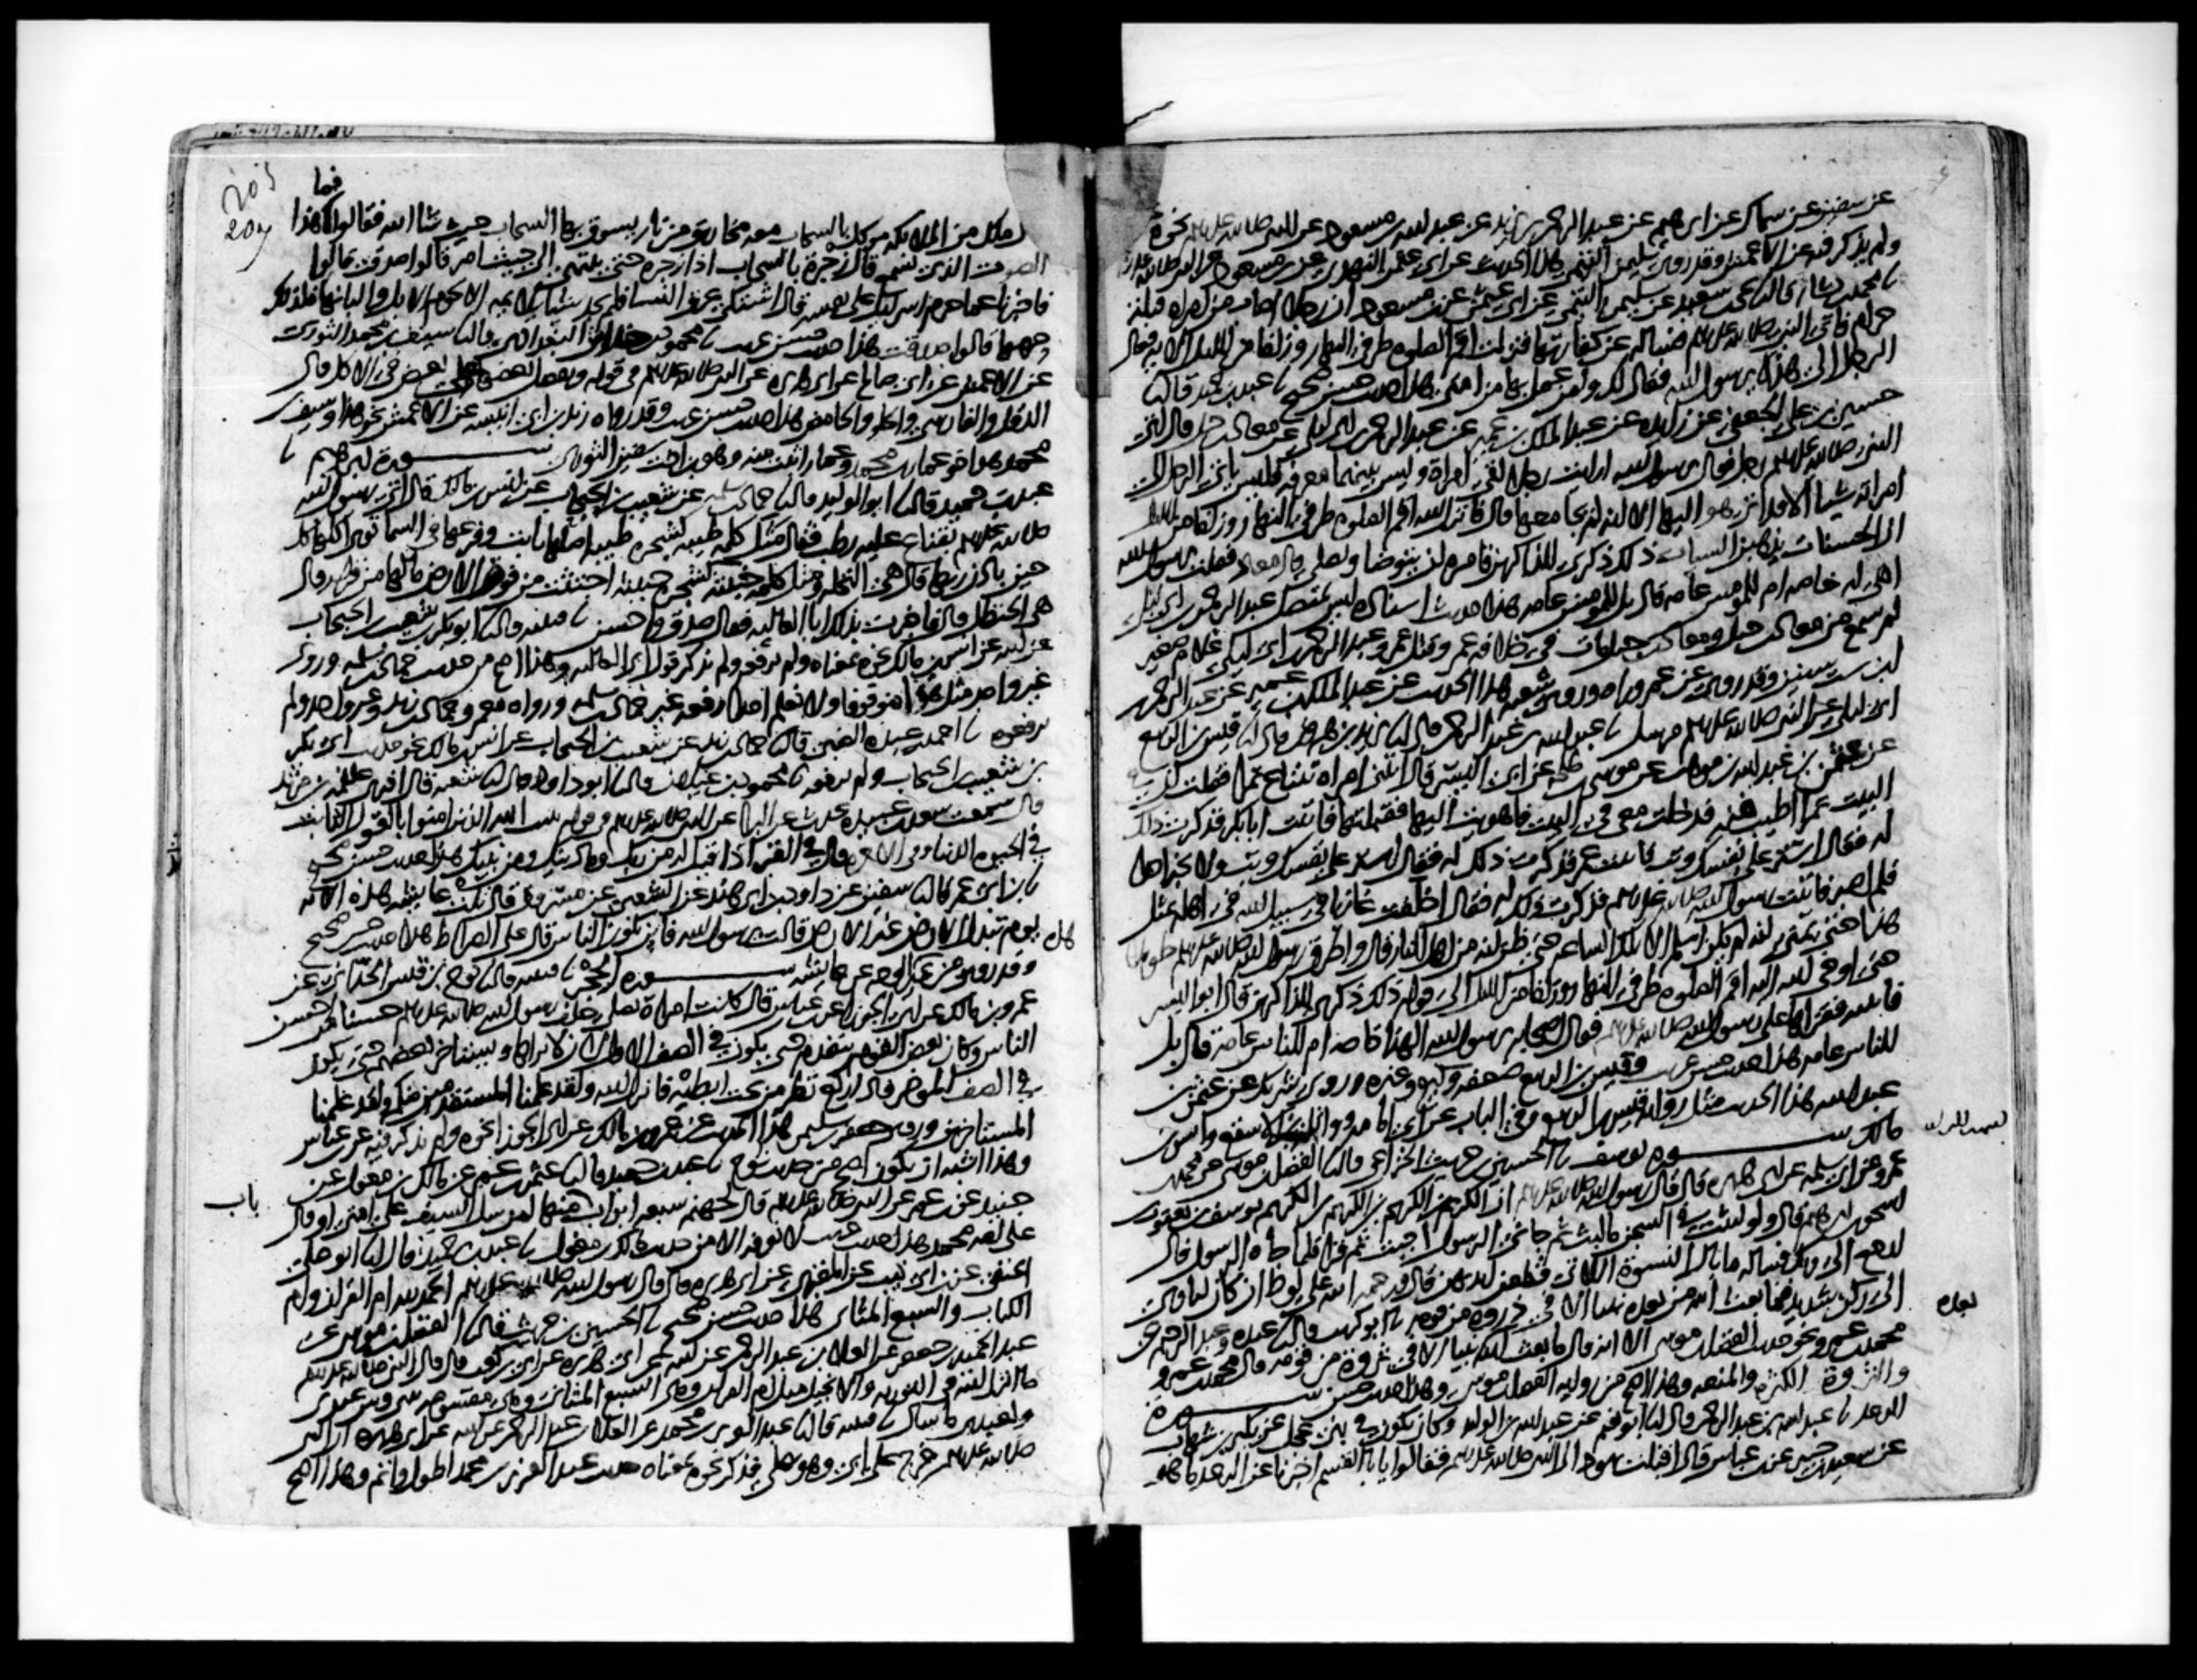 عن سفين عن سماك عن ابرهيم عن عبد الرحمن بن يزيد عن عبد الله بن مسعود عن النبي صلى الله عليه وسلم نحوه
ولم يذكر فيه عن الاعمش وقد روى سليمن التيمي هذا الحديث عن ابي عثمن النهدي عن بن مسعود عن النبي صلى الله عليه وسلم
نا محمد بن بشار قال نا يحيى بن سعيد عن سليمن التيمي عن ابي عثمن عن بن مسعود ان رجلا اصاب من امراه قبلة
حرام فاتى النبي صلى الله عليه وسلم فساله عن كفارتها فنزلت اقم الصلوه طرفي النهار وزلفا من الليل الايه فقال
الرجل الي هذه يرسول الله فقال لك ولمن عمل بها من امتي هذا حديث حسن صحيح نا عبد بن حميد قال نا
حسين بن علي الجعفي عن زايده عن عبد الملك بن عمير عن عبد الرحمن بن ابي ليلى عن معاذ بن جبل قال اتى
النبي صلى الله عليه وسلم رجل فقال يرسول الله ارايت رجلا لقي امراة وليس بينهما معرفه فليس ياتي الرجل الى
امراته شيا الا قد اتى هو اليها الا انه لم يجامعها قال فانزل الله اقم الصلوه طرفي النهار وزلفا من الليل
ان الحسنات يذهبن السيات ذلك ذكرى للذاكرين فامره ان يتوضا ويصلي قال معاذ فقلت يرسول الله
اهي له خاصه ام للمومنين عامه قال بل للمومنين عامه هذا حديث اسناده ليس بمتصل عبد الرحمن بن ابي ليلى
لم يسمع من معاذ بن جبل ومعاذ بن جبل مات في خلافه عمر وقتل عمر وعبد الرحمن بن ابي ليلى غلام صغير
ابن ست سنين وقد روى عن عمر وراه وروى شعبه هذا الحديث عن عبد الملك بن عمير عن عبد الرحمن
ابن ابي ليلى عن النبي صلى الله عليه وسلم مرسل نا عبد الله بن عبد الرحمن قال انا يزيد بن هرون قال انا قيس بن الربيع
عن عثمن بن عبد الله بن موهب عن موسى بن طلحه عن ابي اليسر قال اتتني امراه تبتاع تمرا فقلت ان في
البيت تمرا اطيب منه فدخلت معي في البيت فاهويت اليها فقبلتها فاتيت ابا بكر فذكرت ذلك
له فقال استر على نفسك وتب فاتيت عمر فذكرت ذلك له فقال استر على نفسك وتب ولا تخبر احدا
فلم اصبر فاتيت رسول الله صلى الله عليه وسلم فذكرت ذلك له فقال اخلفت غازيا في سبيل الله في اهله بمثل
هذا حتى تمنى انه لم يكن اسلم الا تلك الساعه حتى ظن انه من اهل النار قال واطرق رسول الله صلى الله عليه وسلم طويلا
حتى اوحى الله اليه اقم الصلوه طرفي النهار وزلفا من الليل الى قوله ذلك ذكرى للذاكرين قال ابو اليسر
فاتيته فقراها على رسول الله صلى الله عليه وسلم فقال اصحابه يرسول الله الهذا خاصه ام للناس عامة قال بل
للناس عامه هذا حديث حسن غريب وقيس بن الربيع ضعفه وكيع وغيره وروى شريك عن عثمن بن
عبد الله هذا الحديث مثل روايه قيس بن الربيع وفي الباب عن ابي امامه وواثلة بن الاسقع وانس بن
مالك سورة يوسف نا الحسين بن حريث الخزاعي قال نا الفضل بن موسى عن محمد
عمرو عن ابي سلمه عن ابي هريره قال قال رسول الله صلى الله عليه وسلم ان الكريم بن الكريم بن الكريم بن الكريم يوسف بن يعقوب
اسحق بن ابرهيم قال ولو لبثت في السجن ما لبث ثم جاني الرسول اجبت ثم قرا فلما جاه الرسول قال
ارجع الى ربك فساله ما بال النسوة اللاتي قطعن ايديهن قال ورحمه الله على لوط ان كان لياوي
الى ركن شديد فما بعث الله من بعده نبيا الا في ذروه من قومه نا ابو كريب قال نا عبده وعبد الرحيم عن
بعده
محمد بن عمرو نحو حديث الفضل بن موسى الا انه قال ما بعث الله بعده نبيا الا في ثروة من قومه قال محمد بن عمرو
والثروة الكثرة والمنعه وهذا اصح من روايه الفضل بن موسى وهذا حديث حسن سورة
الرعد نا عبد الله بن عبد الرحمن قال انا ابو نعيم عن عبد الله بن الوليد وكان يكون في بني عجل عن بكير بن شهاب
عن سعيد بن جبير عن بن عباس قال اقبلت يهود الى النبي صلى الله عليه وسلم فقالوا يا ابا القسم اخبرنا عن الرعد ما هو
205
209
فما
ملك من الملايكه موكل بالسحاب معه مخاريق من نار يسوق بها السحاب حيث شا الله فقالوا هذا
الصوت الذي نسمع قال زجرة بالسحاب اذا زجره حتى ينتهي الى حيث امر قالوا صدقت قالوا
فاخبرنا عما حرم اسرايل على نفسه قال اشتكى عرق النسا فلم يجد شيا يلايمه الا لحوم الابل والبانها فلذلك
حرمها قالوا صدقت هذا حديث حسن غريب نا محمود بن خداش البغدادي قال نا سيف بن محمد الثوري
عن الاعمش عن ابي صالح عن ابي هريره عن النبي صلى الله عليه وسلم في قوله ونفضل بعضها على بعض في الاكل قال
الدقل والفارسي والحلو والحامض هذا حديث حسن غريب وقد رواه زيد بن ابي انيسه عن الاعمش نحو هذا وسيف
محمد هو اخو عمار بن محمد وعمار اثبت منه وهو بن اخت سفين الثوري سورة ابرهيم نا
عبد بن حميد قال نا ابو الوليد قال نا حماد بن سلمه عن شعيب بن الحبحاب عن انس بن مالك قال اتي رسول الله
صلى الله عليه وسلم بقناع عليه رطب فقال مثل كلمه طيبه كشجره طيبه اصلها ثابت وفرعها في السما توتي اكلها كل
حين باذن ربها قال هي النخله ومثل كلمه خبيثه كشجره خبيثه اجتثت من فوق الارض ما لها من قرار قال
هي الحنظل قال فاخبرت بذلك ابا العاليه فقال صدق واحسن نا قتيبه قال نا ابو بكر بن شعيب بن الحبحاب
عن ابيه عن انس بن مالك نحوه بمعناه ولم يرفعه ولم يذكر قول ابي العاليه وهذا اصح من حديث حماد بن سلمه وروى
غير واحد مثل هذا موقوفا ولا نعلم احدا رفعه غير حماد بن سلمه ورواه معمر وحماد بن زيد وغير واحد ولم
يرفعوه نا احمد بن عبده الضبي قال نا حماد بن زيد عن شعيب بن الحبحاب عن انس بن مالك نحو حديث ابي بكر
بن شعيب بن الحبحاب ولم يرفعه نا محمود بن غيلان قال نا ابو داود قال نا شعبه قال اخبرني علقمه بن مرثد
قال سمعت سعد بن عبيده يحدث عن البرا عن النبي صلى الله عليه وسلم في قوله يثبت الله الذين امنوا بالقول الثابت
في الحيوه الدنيا وفي الاخره قال في القبر اذا قيل له من ربك وما دينك ومن نبيك هذا حديث حسن صحيح
نا بن ابي عمر قال نا سفين عن داود بن ابي هند عن الشعبي عن مسروق قال تلت عايشه هذه الايه
يوم تبدل الارض غير الارض قالت يرسول الله فاين يكون الناس قال على الصراط هذا حديث حسن صحيح
وقد روي من غير وجه عن عايشه سورة الحجر نا قتيبه قال نا نوح بن قيس الحداني عن
عمرو بن مالك عن ابي الجوزا عن بن عباس قال كانت امراة تصلي خلف رسول الله صلى الله عليه وسلم حسنا من احسن
الناس وكان بعض القوم يتقدم حتى يكون في الصف الاول لان لا يراها ويستاخر بعضهم حتى يكون
في الصف الموخر فاذا ركع نظر من تحت ابطيه فانزل الله ولقد علمنا المستقدمين منكم ولقد علمنا
المستاخرين وروى جعفر بن سليمن هذا الحديث عن عمرو بن مالك عن ابي الجوزا نحوه ولم يذكر فيه عن بن عباس
وهذا اشبه ان يكون اصح من حديث نوح نا عبد بن حميد قال نا عثمن بن عمر عن مالك بن مغول عن
باب
جنيد عن بن عمر عن النبي صلى الله عليه وسلم قال لجهنم سبعه ابواب باب منها لمن سل السيف على امتي او قال
على امه محمد هذا حديث غريب لا نعرفه الا من حديث مالك بن مغول نا عبد بن حميد قال نا ابو علي
الحنفي عن بن ابي ذيب عن المقبري عن ابي هريره قال قال رسول الله صلى الله عليه وسلم الحمد لله ام القران وام
الكتاب والسبع المثاني هذا حديث حسن صحيح نا الحسين بن حريث قال نا الفضل بن موسى عن
عبد الحميد بن جعفر عن العلا بن عبد الرحمن عن ابيه عن ابي هريره عن ابي بن كعب قال قال النبي صلى الله عليه وسلم
ما انزل الله في التوريه والانجيل مثل ام القران وهي السبع المثاني وهي مقسومه بيني وبين عبدي
ولعبدي ما سال نا قتيبه قال نا عبد العزيز بن محمد عن العلا بن عبد الرحمن عن ابيه عن ابي هريره ان النبي
صلى الله عليه وسلم خرج على ابي وهو يصلي فذكر نحوه بمعناه حديث عبد العزيز بن محمد اطول واتم وهذا اصح